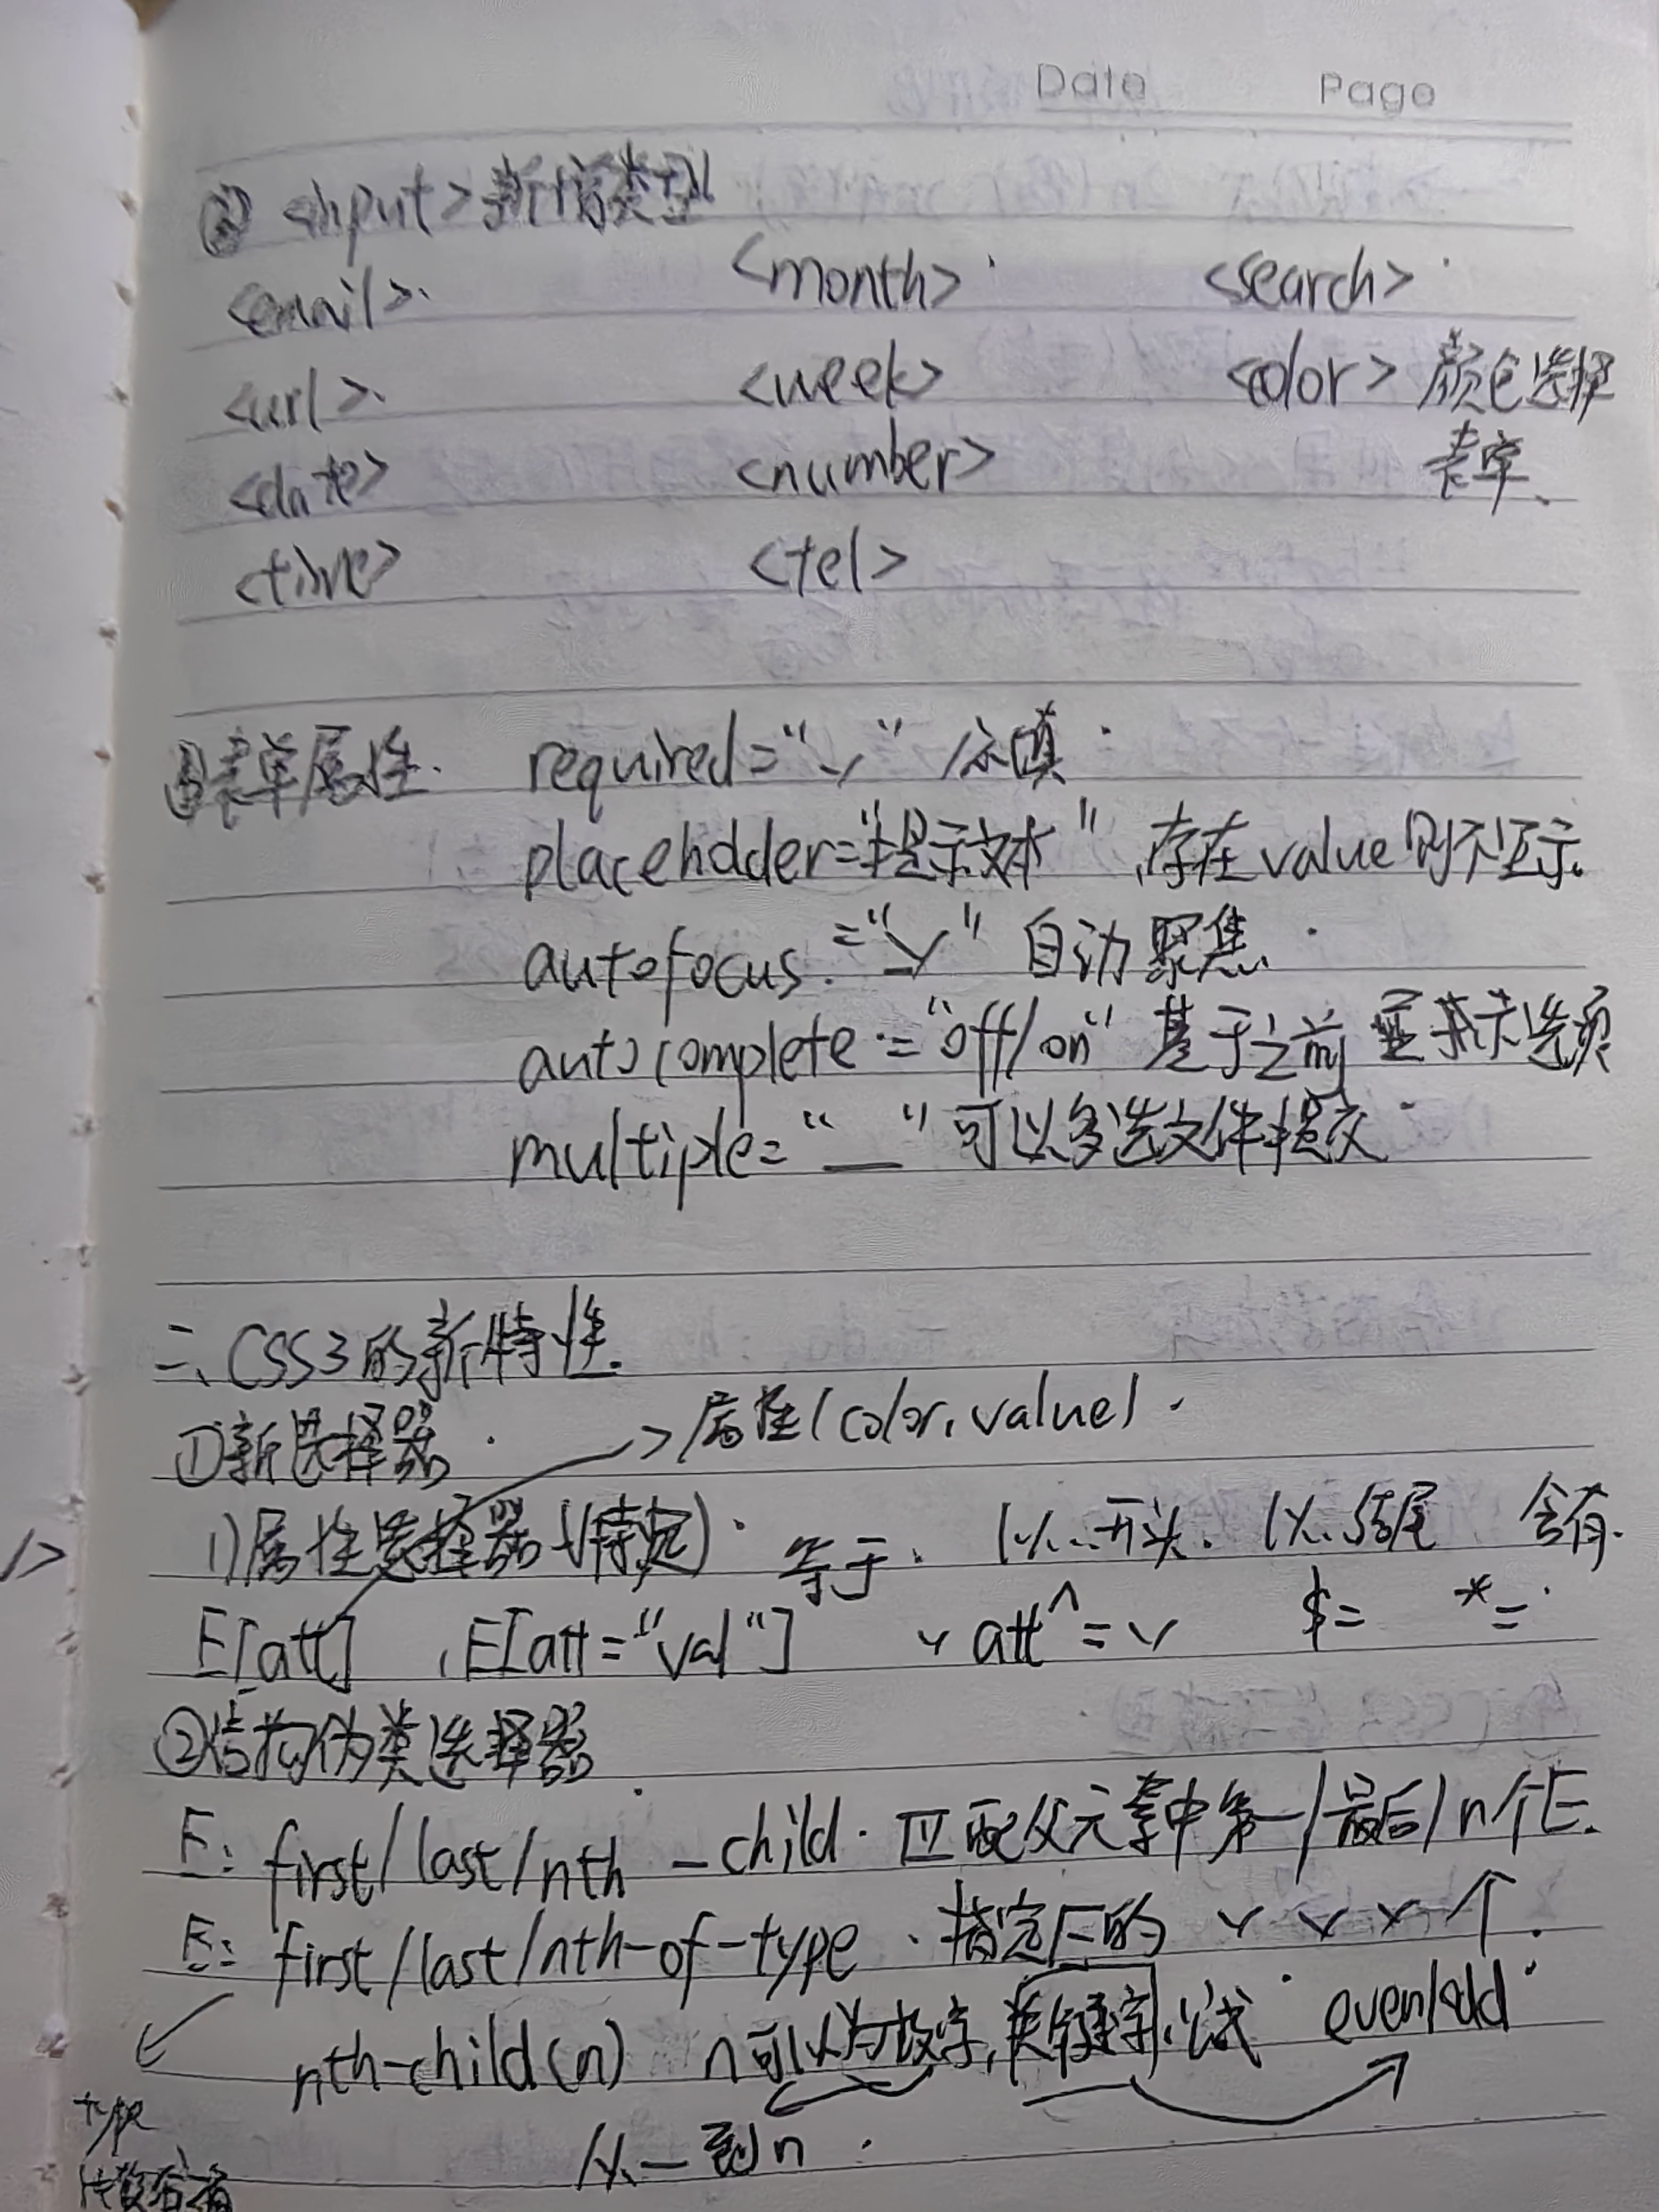 Date Page
② <input>新增类型
<email> <month> <search>
<url> <week> <color> 颜色选择
<date> <number> 表字
<time> <tel>
③表单属性. required="〃" 必填
placeholder="提示文本",存在value则不显示.
autofocus="〃" 自动聚焦.
autocomplete="off/on" 基于之前 显示选项
multiple="__"可以多选文件提交
二、CSS3的新特性.
①新选择器 →属性(color,value)
1)属性选择器 (特定) 等于. 以..开头. 以..结尾 含有.
/>
E[att] ,E[att="val"] 〃att^=〃 $= *=
②结构伪类选择器
E: first/last/nth-child. 匹配父元素中第一/最后/n个E.
E: first/last/nth-of-type. 指定E的〃〃〃个.
nth-child(n) n可以为数字,关键字.公式 even/odd
type
从一到n.